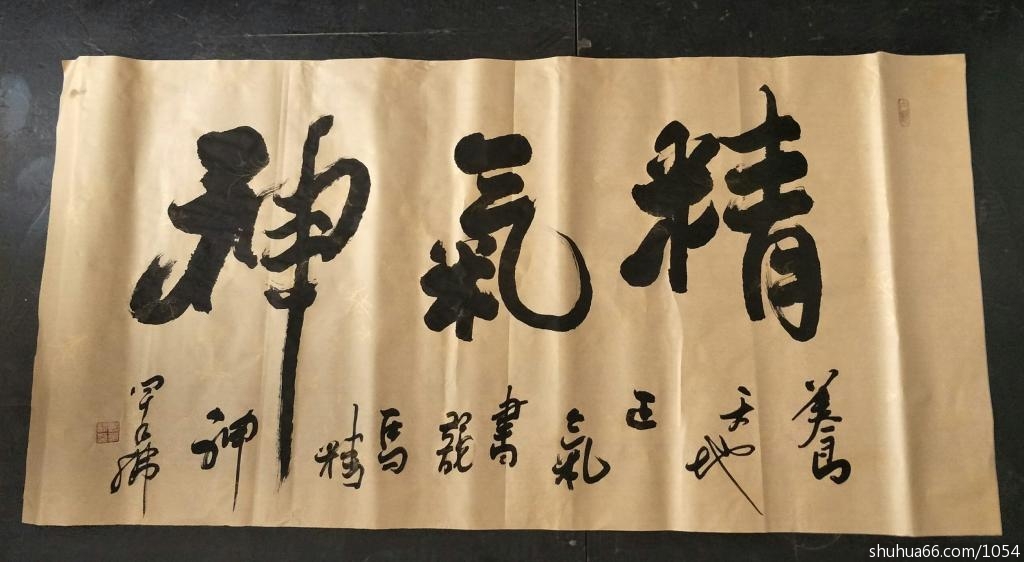 精氣神
養天地正氣書龍馬精神
shuhua66.com/1054